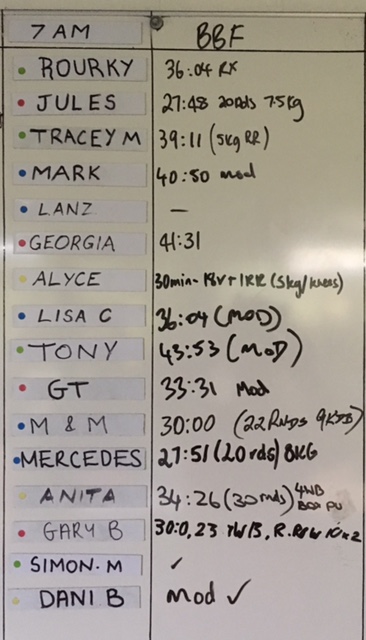 7 AM BBF
ROURKY 36:04 RX
JULES 27:48 20Rds 7.5kg
TRACEY M 39:11 (5kg RR)
MARK 40:50 mod
LANZ —
GEORGIA 41:31
ALYCE 30min- 18v + 1RR (5kg/knees)
LISA C 36:04 (MOD)
TONY 43:53 (MOD)
GT 33:31 Mod
M & M 30:00 (22 RNDS 9KDB)
MERCEDES 27:51 (20 rds) 8KG
ANITA 34:26 (30 rnds)
GARY B 30:0, 23
SIMON. M ✓
DANI B mod ✓